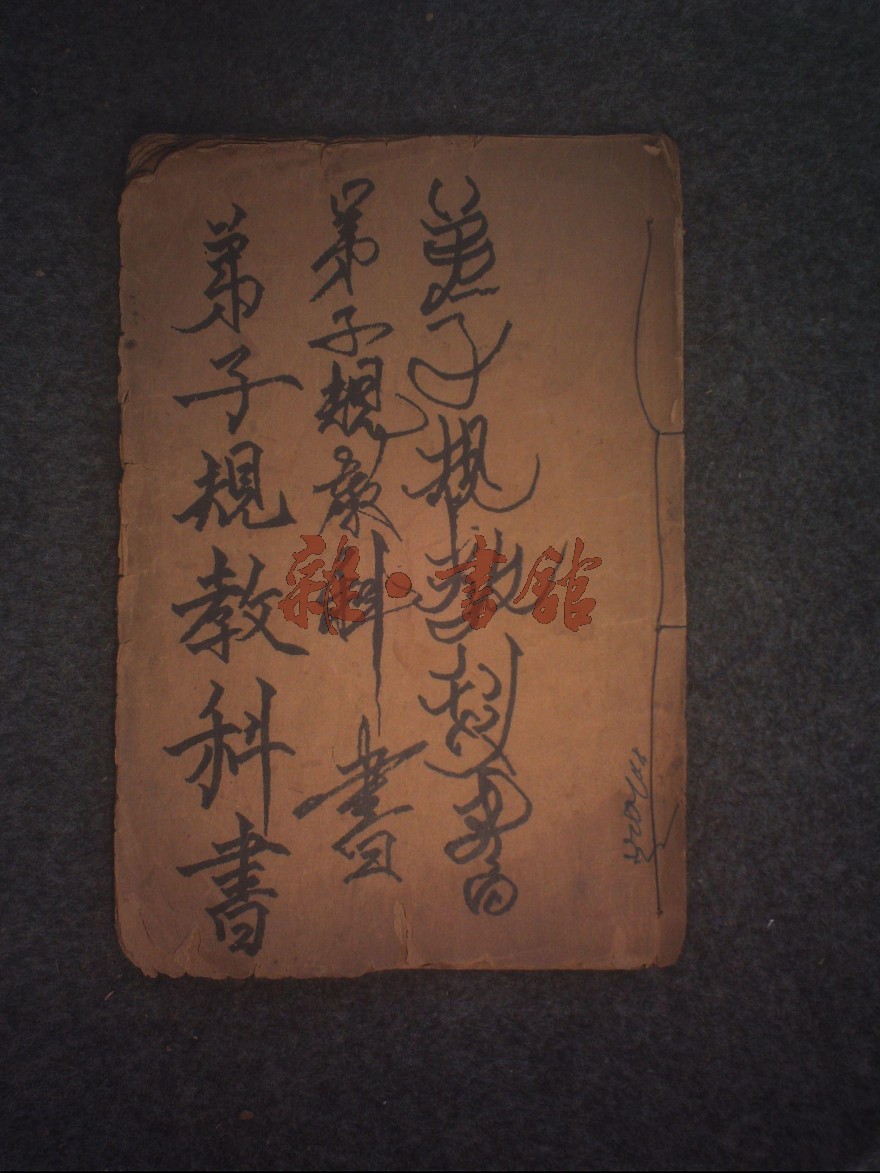 弟子規教科書
弟子規教科書
弟子規教科書
雜·書館